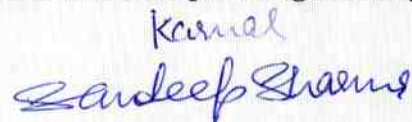 Karnal
Sandeep Sharma